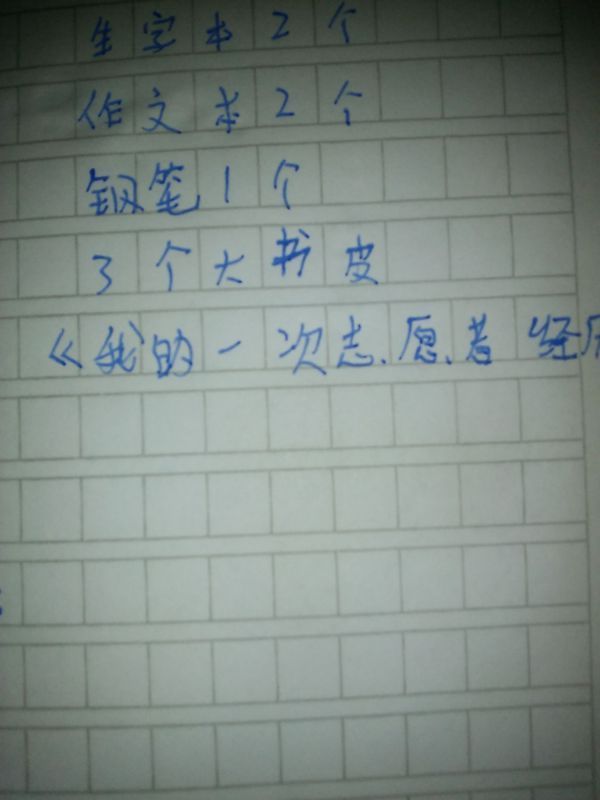 生字本2个
作文本2个
钢笔1个
3个大书皮
《我的一次志愿者经历